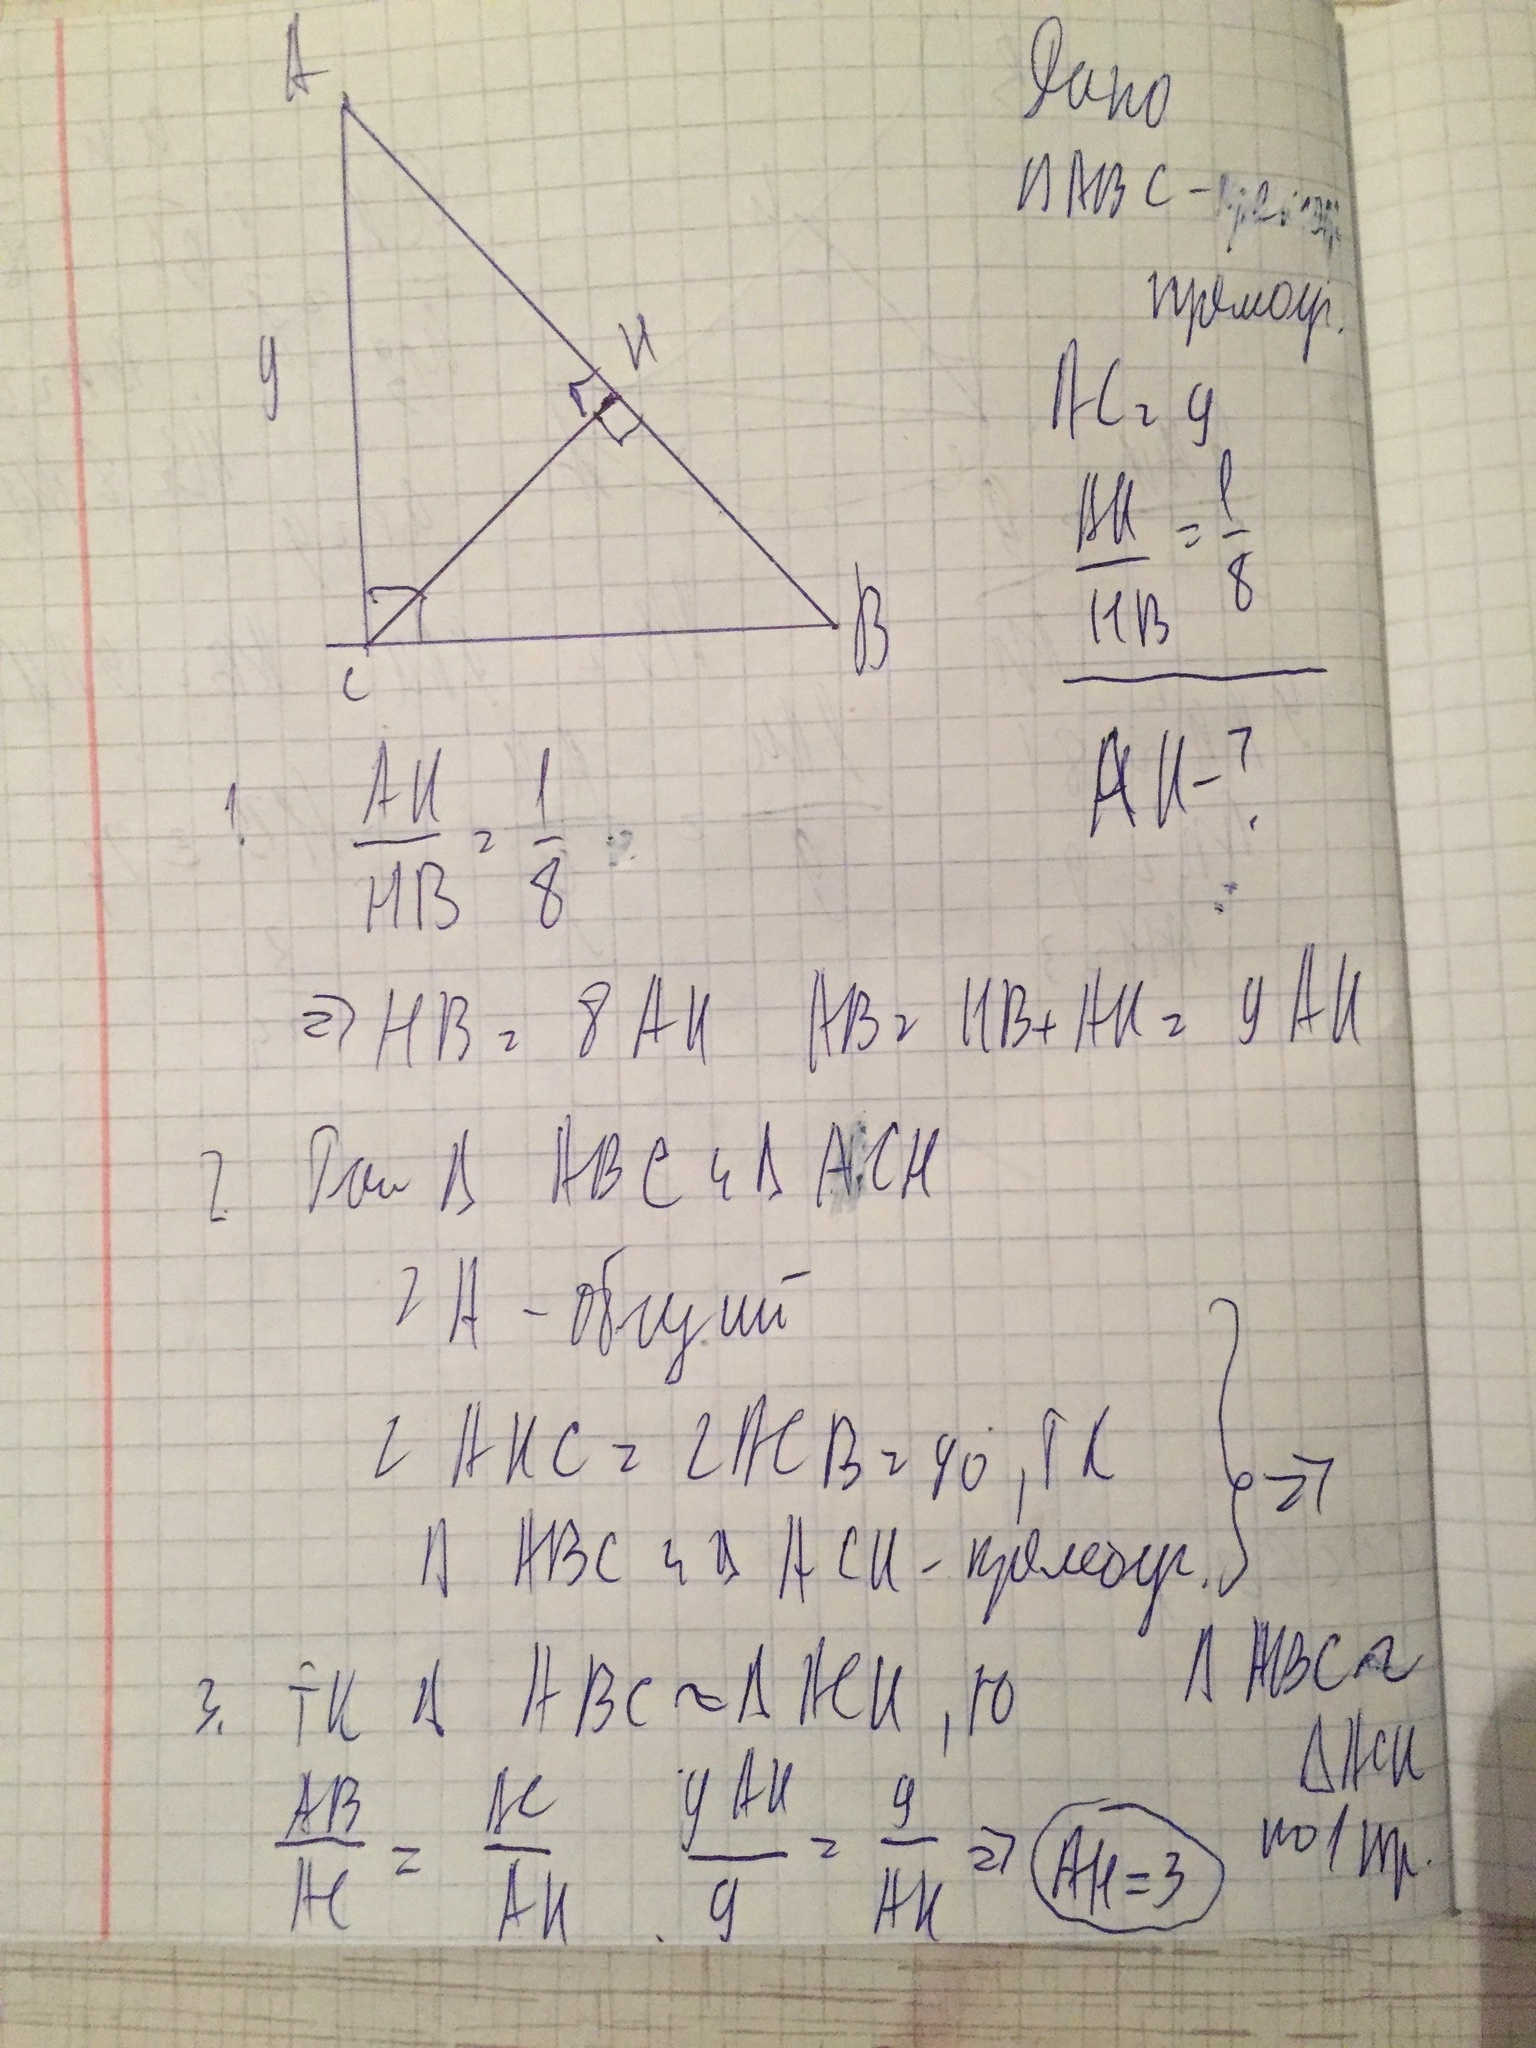 A
H
9
C
B
Дано
Δ ABC -
прямоуг.
AC = 9
AH/HB = 1/8
AH - ?
1. AH/HB = 1/8
=> HB = 8 AH AB = HB + AH = 9 AH
2. Рам Δ ABC и Δ ACH
∠ A - общий
∠ AHC = ∠ ACB = 90°, тк
Δ ABC и Δ ACH - прямоуг. } =>
Δ ABC ~
Δ ACH
по 1 пр.
3. тк Δ ABC ~ Δ ACH, то
AB/AC = AC/AH 9 AH/9 = 9/AH => AH = 3